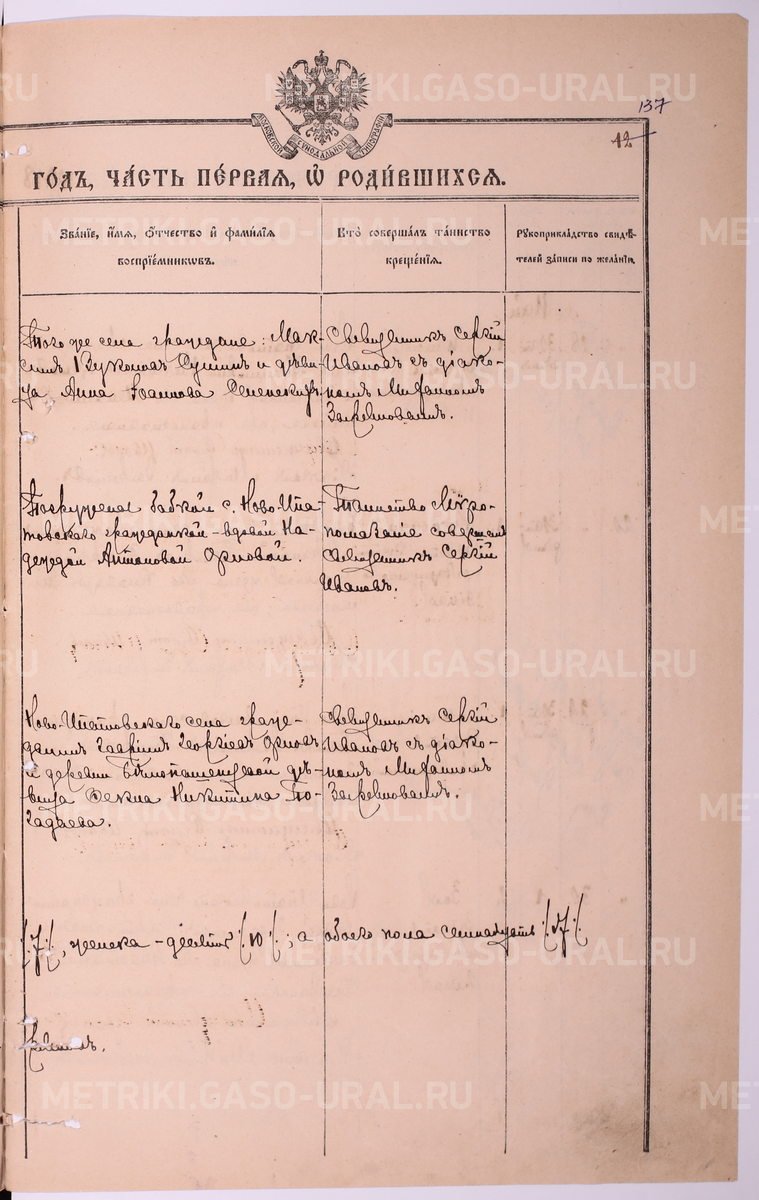 137
12
МОСКОВСКОЙ СѴНОДАЛЬНОЙ ТИПОГРАФІИ
го́дъ, ча́сть пе́рвая, ѡ҆ роди́вшихся.
Зва́нїе, и҆́мя, ѻ҆́тчество и҆ фами́лїя
воспрїе́мникѡвъ.
Кто̀ соверша́лъ та́инство
креще́нїя.
Рꙋкоприкла́дство свидѣ́-
телей за́писи по жела́нїю.
Того же села граждане: Мак-
симъ Вуколовъ Сушинъ и дѣви-
ца Анна Іоаннова
Священникъ Сергій
Ивановъ съ діако-
номъ Митфаномъ
Загребновымъ.
Погружена бабкой с. Ново-Ипа-
товскаго гражданкой - вдовой На-
деждой Антоновой Орловой.
Таинство Мѵро-
помазанія совершилъ
Священникъ Сергій
Ивановъ.
Ново-Ипатовскаго села граж-
данинъ Гавріилъ Георгіевъ Орловъ
и деревни дѣ-
вица Фекла Никитина По-
гадаева.
Священникъ Сергій
Ивановъ съ діако-
номъ
Загребновымъ.
/:7:/, женска - десять /:10:/; а обоего пола семнадцать /:17:/.
METRIKI.GASO-URAL.RU